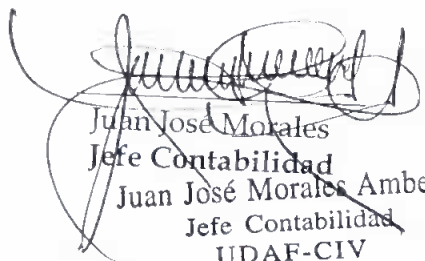 Juan José Morales
Jefe Contabilidad
Juan José Morales Ambe
Jefe Contabilidad
UDAF-CIV